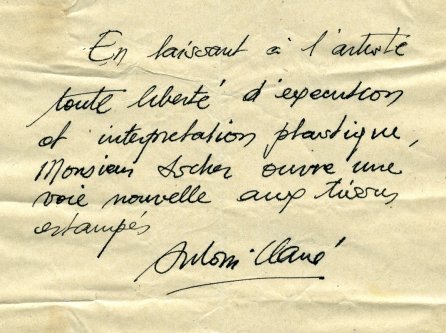 En laissant à l'artiste
toute liberté d'execution
et interpretation plastique,
Monsieur ouvre une
voie nouvelle aux tissus
estampés
Antoni Clavé